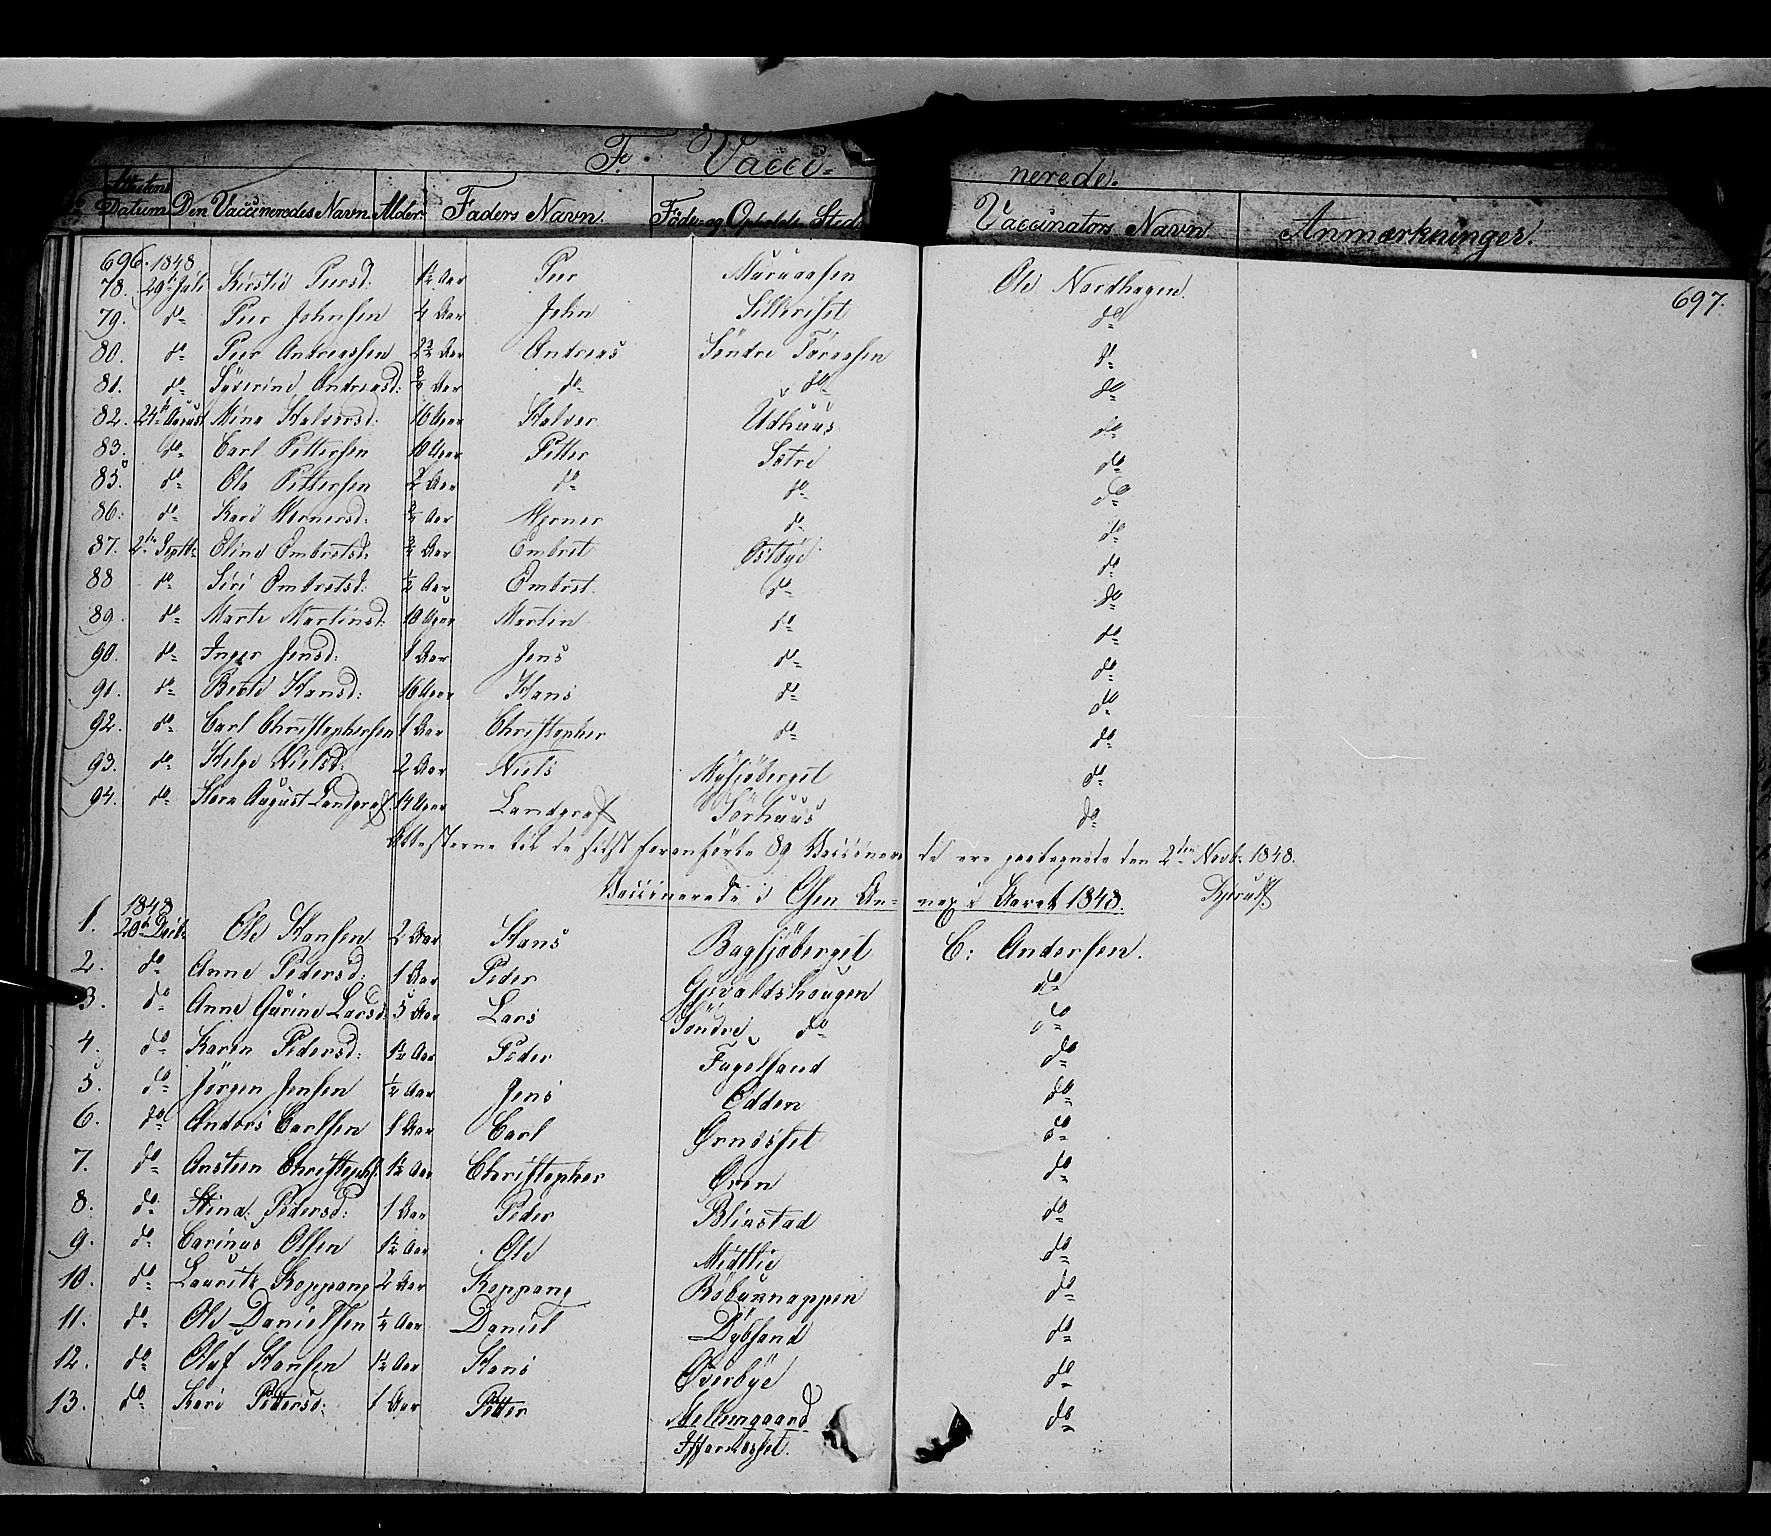 F. Vacci- nerede.
Attestens Datum Den Vaccineredes Navn Alder Faders Navn. Föde- og Opholds-Sted Vaccinators Navn Anmærkninger.
696. 1848 697.
78. 20de Juli Kirsti Peersd: 1 1/2 Aar Peer Ole Nordhagen.
79. do Peer Johnsen 4 Aar John do
80. do Peer Andreassen Aar Andreas Söndre do
81. do Andreasd: 3/4 Aar do do do
82. 24de August Mina Halversd: 10 Uger Halver Udhuus do
83. do Carl Pettersen 10 Uger Petter Sætre do
85. do Ole Pettersen 2 Aar do do do
86. do Kari Wernersd: Aar Werner do do
87. 2den Septbr Eline Embretsd: Aar Embret Ostbye do
88 do Siri Embretsd: 1/2 Aar Embret. do do
89. do Marte Martinsd: 10 Uger Martin do do
90. do Inger Jensd: 1 Aar Jens do do
91. do Berte Hansd: 16 Uger Hans do do
92. do Carl Christophersen 1 Aar Christopher do do
93. do Helge Nielsd: 2 Aar Niels Mysjöberget do
94. do August Landgraf Uger Landgraf Sörhuus do
Attesterne til de sidst foranförte 89 Vaccinerede ere paategnede den 2den Novbr: 1848.
Vaccinerede i Osen Annex i Aaret 1848. Kjerulf
1848
1. 20de Ole Hansen 2 Aar Hans Bagsjöberget C: Andersen.
2. do Anne Pedersd: 1 Aar Peder Gjevaldshaugen do
3. do Anne Gurine Larsd: 5 Aar Lars Söndre do do
4. do Karen Pedersd: 1 1/2 Aar Peder Fugelsand do
5. do Jörgen Jensen 1/2 Aar Jens Odden do
6. do Anders Carlsen 1 Aar Carl Örnesset do
7. do Ansteen Christophs. 1 1/2 Aar Christopher Oren do
8. do Stina Pedersd: 1 Aar Peder Blinstad do
9. do Carinus Olsen 1 1/2 Aar Ole Midtlie do
10. do Lauritz Koppang 2 Aar Koppang do
11. do Ole Danielsen Aar Daniel Dybsand do
12. do Oluf Hansen 1 1/2 Aar Hans Overbye do
13. do Kari Pettersd: 1 Aar Petter Mellemgaard do